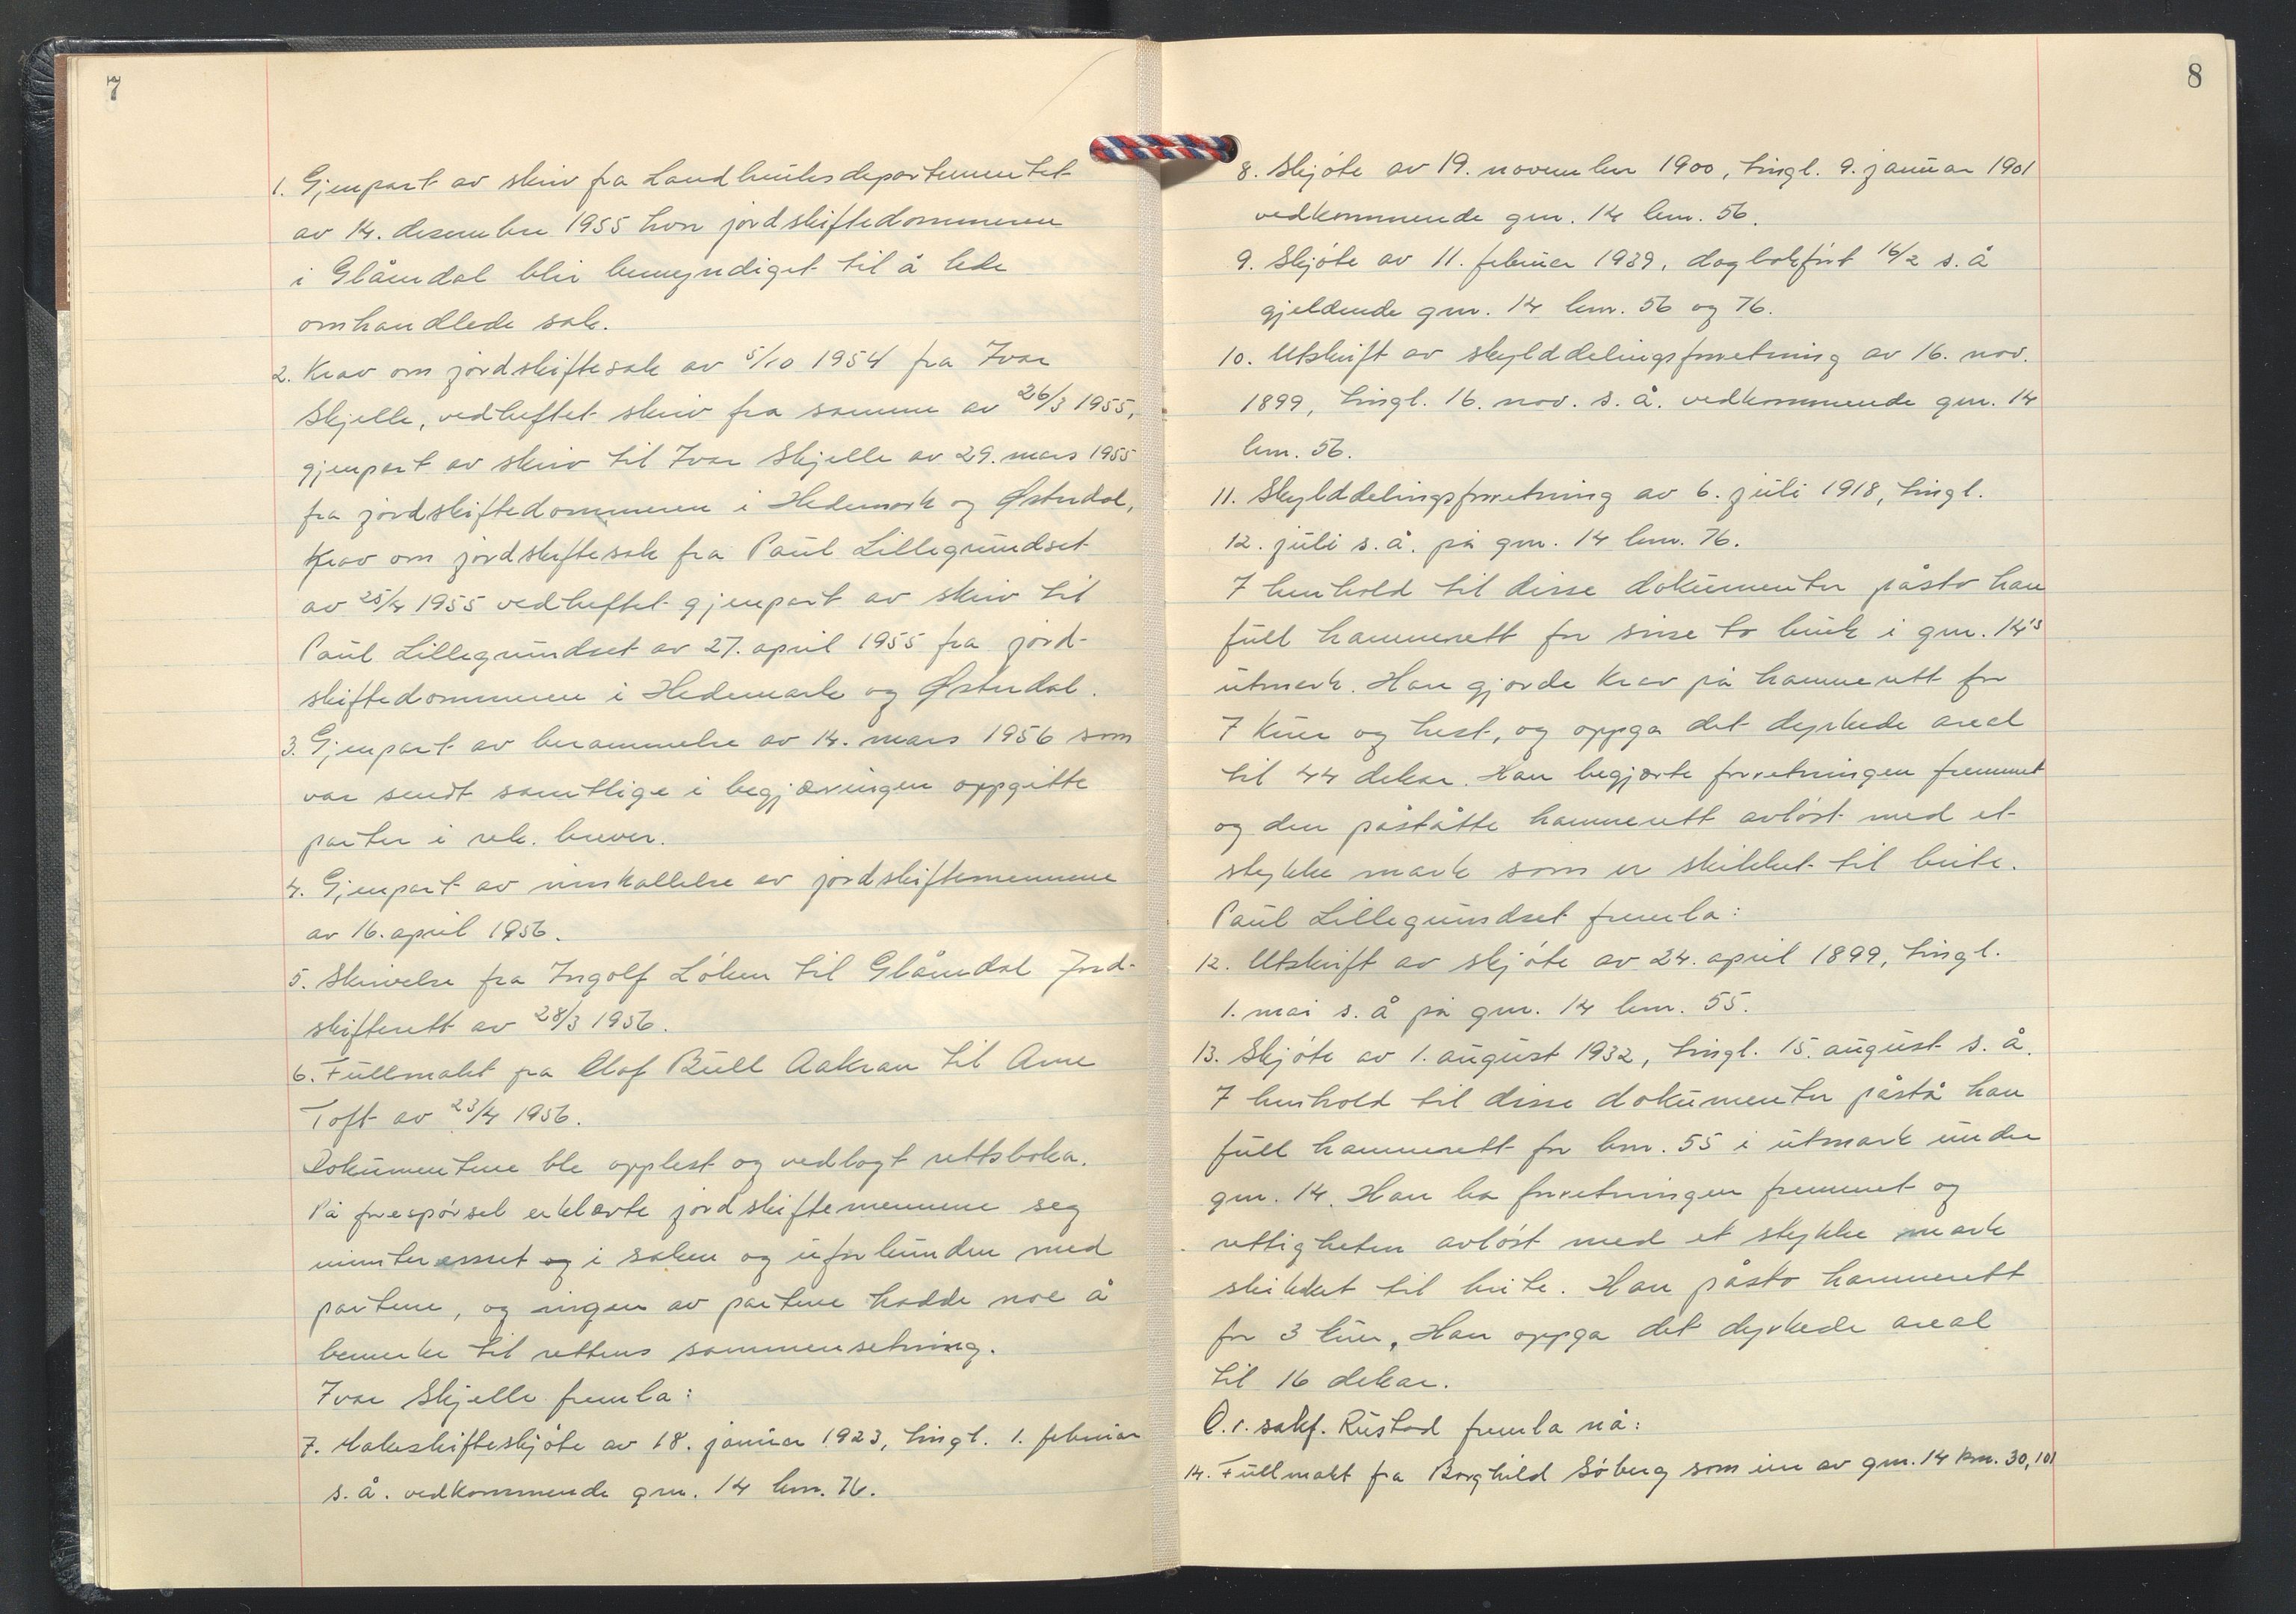 7
1. Gjenpart av skriv fra Landbruksdepartementet
av 14. desember 1955 hvor jordskiftedommeren
i Glåmdal blir bemyndiget til å lede
omhandlede sak.
2. Krav om jordskiftesak av 5/10 1954 fra Ivar
Skjelle, vedheftet skriv fra samme av 26/3 1955,
gjenpart av skriv til Ivar Skjelle av 29. mars 1955
fra jordskiftedommeren i Hedemark og Østerdal,
Krav om jordskiftesak fra Paul Lillegrundset
av 25/4 1955 vedheftet gjenpart av skriv til
Paul Lillegrundset av 27. april 1955 fra jord-
skiftedommeren i Hedemark og Østerdal.
3. Gjenpart av berammelse av 14. mars 1956 som
var sendt samtlige i begjæringen oppgitte
parter i rek. brever.
4. Gjenpart av innkallelse av jordskiftemennene
av 16. april 1956.
5. Skrivelse fra Ingolf Løken til Glåmdal Jord-
skifterett av 28/3 1956.
6. Fullmakt fra Olaf Bull Aakran til Arne
Toft av 23/4 1956.
Dokumentene ble opplest og vedlagt rettsboka.
På forespørsel erklærte jordskiftemennene seg
uinteresset og i saken og uforbunden med
partene, og ingen av partene hadde noe å
bemerke til rettens sammensetning.
Ivar Skjelle fremla:
7. Makeskifteskjøte av 18. januar 1923, tingl. 1. februar
s.å. vedkommende gnr. 14 bnr. 76.
8
8. Skjøte av 19. november 1900, tingl. 9. januar 1901
vedkommende gnr. 14 bnr. 56.
9. Skjøte av 11. februar 1939, dagbokført 16/2 s.å
gjeldende gnr. 14 bnr. 56 og 76.
10. Utskrift av skylddelingsforretning av 16. nov.
1899, tingl. 16. nov. s.å. vedkommende gnr. 14
bnr. 56.
11. Skylddelingsforretning av 6. juli 1918, tingl.
12. juli s.å. på gnr. 14 bnr. 76.
I henhold til disse dokumenter påsto han
full hamnerett for sine to bruk i gnr. 14's
utmark. Han gjorde krav på hamnerett for
7 kuer og hest, og oppga det dyrkede areal
til 44 dekar. Han begjærte forretningen fremmet
og den påståtte hamnerett avløst med et
stykke mark som er skikket til beite.
Paul Lillegrundset fremla:
12. Utskrift av skjøte av 24. april 1899, tingl.
1. mai s.å på gnr. 14 bnr. 55.
13. Skjøte av 1. august 1932, tingl. 15. august s.å.
I henhold til disse dokumenter påstå han
full hamnerett for bnr. 55 i utmark under
gnr. 14. Han ba forretningen fremmet og
rettigheten avløst med et stykke mark
skikket til beite. Han påsto hamnerett
for 3 kuer. Han oppga det dyrkede areal
til 16 dekar.
O.r. sakf. Rustad fremla nå:
14. Fullmakt fra Borghild Søberg som eier av gnr. 14 bnr. 30, 101